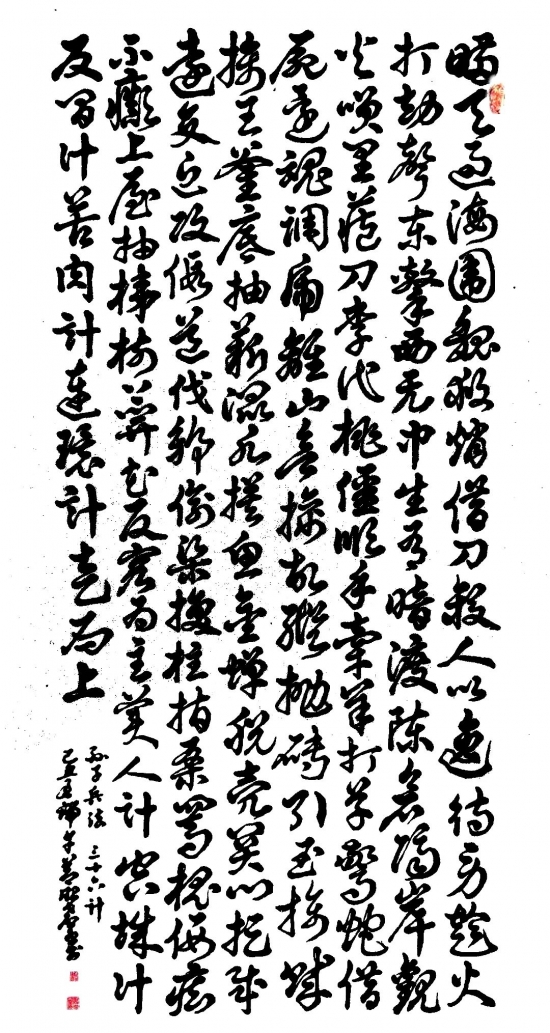 瞒天过海围魏救赵借刀殺人以逸待劳趁火
打劫聲东擊西无中生有暗渡陈仓隔岸觀
火笑里藏刀李代桃僵顺手牽羊打草驚蛇借
屍还魂调虎離山欲擒故縱抛磚引玉擒賊
擒王釜底抽薪混水摸鱼金蝉脱壳关门捉贼
遠交近攻假道伐虢偷梁换柱指桑罵槐假痴
不癫上屋抽梯树上開花反客为主美人計空城计
反间计苦肉計連環計走为上
孙子兵法 三十六计
己丑